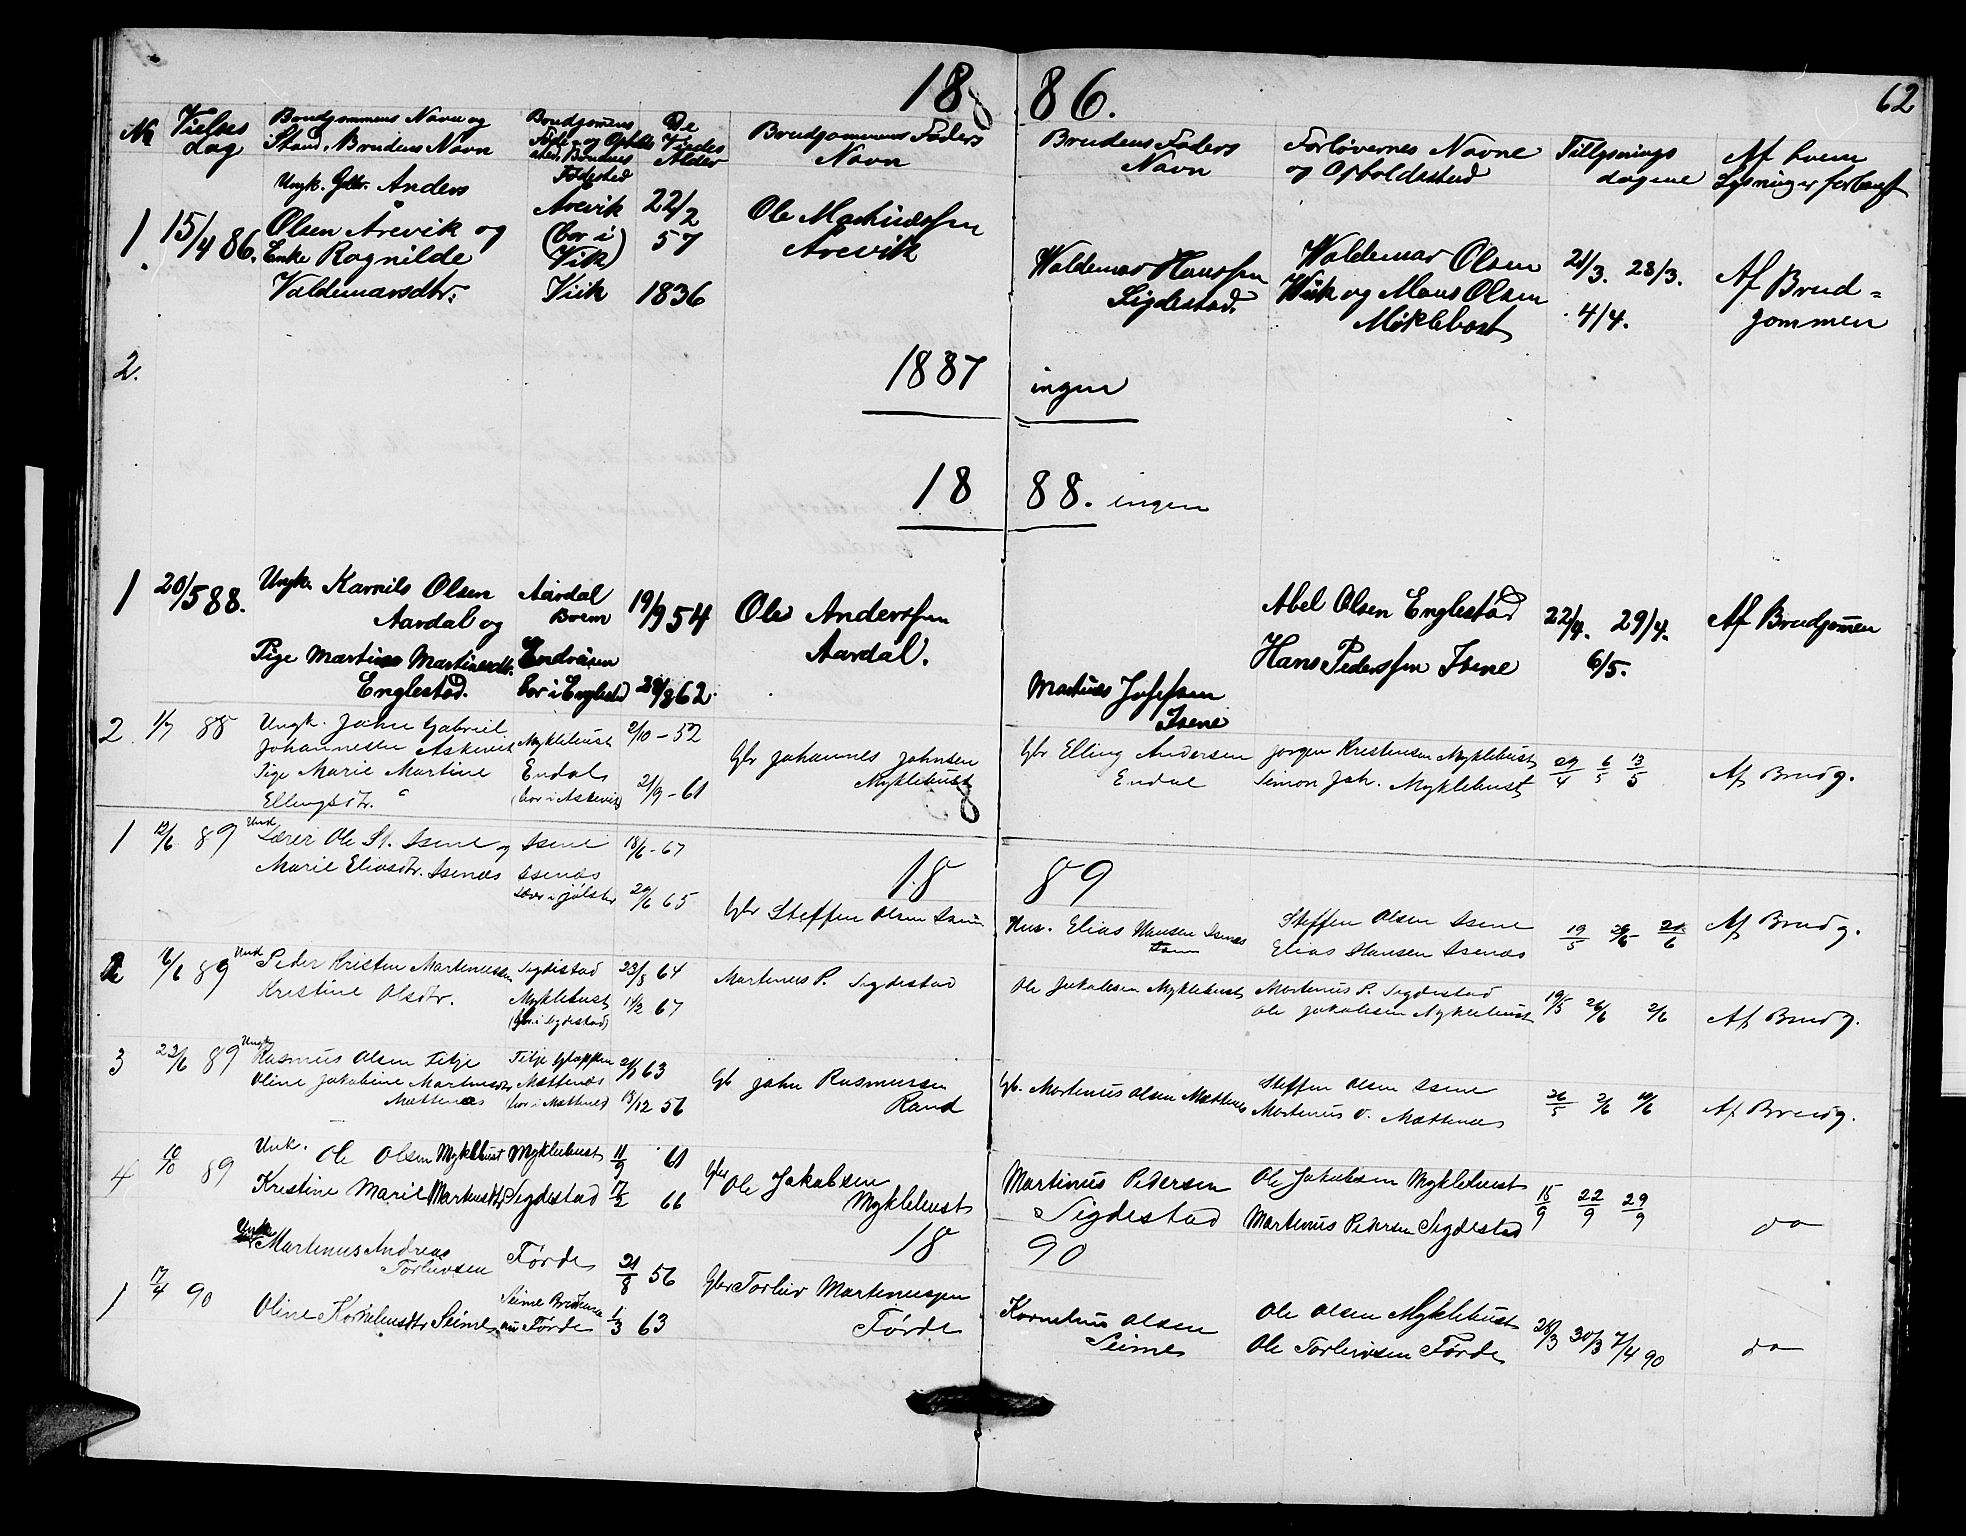 1886.
62
No Vielses dag
Brudgommens Navn og Stand, Brudens Navn
De Viedes Alder
Brudgommens Faders Navn
Brudens Faders Navn
Forlovernes Navne og Opholdssted
Tillysnings dagene
Af hvem Lysning er forlangt
Ungk. Gbr. Anders
1 15/4 86. Olsen Årevik og
Enke Ragnilde
Valdemarsdtr.
Årevik
(bor i
Vik)
Viik
22/2
57
1836
Ole
Årevik
Waldemar Hanssen
Sigdestad.
Waldemar Olsen
Wiik og Mons Olsen
Møklebost
21/3. 28/3.
4/4.
Af Brud=
gommen
2.
1887 ingen
1888. ingen
1 20/5 88. Ungk. Karnils Olsen
Aardal og
Pige Martine Martinesdt.
Englestad.
Aardal
Brem
Endvisen
bor i Englestad
19/9 54
28/8 62
Ole Anderssen
Aardal.
Martines Josefsen
Isene
Abel Olsen Englestad
Hans Pederssen Isene
22/4. 29/4.
6/5.
Af Brudgomen
2 1/7 88 Ungk. Johan Gabriel
Johannesen Askevik
Pige Marie Martine
Ellingsdtr.
Myklebust
Endal
(bor i Askevik)
2/10 - 52
21/9 - 61
Gbr Johannes Johnsen
Myklebust
Gbr Elling Andersen
Endal
Jørgen Kristensen Myklebust
Simon Joh. Myklebust
29/4 6/5 13/5
Af Brudg.
1889
1 12/6 89 Lærer Ole St. Isene og
Marie Eliasdtr. Isenæs
Isene
Isenæs
Lærer i Jølster
18/6 - 67
20/6 65
Gbr Steffen Olsen Isene
Hus. Elias Hansen Isenæs
Steffen Olsen Isene
Elias Hansen Isenæs
19/5 26/5 2/6
Af Brudg.
2 16/6 89 Peder Kristen Martinussen
Kristine Olsdtr.
Sigdestad
Myklebust
(bor i Sigdestad)
23/5 64
14/2 67
Martenus P. Sigdestad
Ole Jakobsen Myklebust
Martenus P. Sigdestad
Ole Jakobsen Myklebust
19/5 26/6 2/6
Af Brudg.
3 23/6 89 Ungk.
Rasmus Olsen Felje
Oline Jakobine Martinusdtr
Mættenæs
Felje Gloppen
Mættenæs
(bor i Mættenæs
63
13/12 56
Gb John Rasmussen
Rand
Gb. Martenius Olsen Mættenæs
Steffen Olsen Isene
Martenius O. Mættenæs
26/5 2/6 10/6
Af Brudg.
4 10/10 89 Unk. Ole Olsen Myklebust
Kristine Marie Martinusdtr
Myklebust
Sigdestad
11/9 61
17/2 66
Gbr Ole Jakobsen
Myklebust
Martinus Pedersen
Sigdestad
Ole Jakobsen Myklebust
Martinus Pedersen Sigdestad
15/9 22/9 29/9
do
1890
Unk. Martenus Andreas
Torleivsen
1 17/4 90 Oline Kornelensdtr Seime
Førde
Seime Bredheim
nu Førde
21/8 56
1/3 63
Gbr Torleiv Martenussen
Førde
Kornelius Olsen
Seime
Ole Olsen Myklebust
Ole Torleivsen Førde
30/3 7/4 90
do